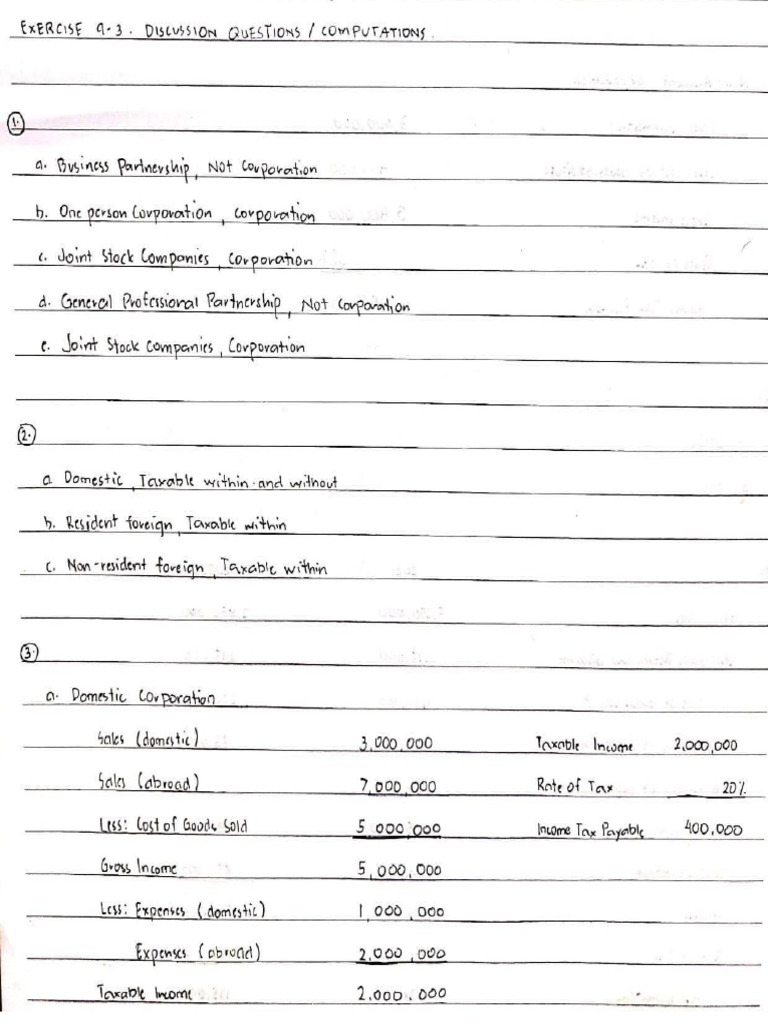 EXERCISE 9-3. DISCUSSION QUESTIONS / COMPUTATIONS.
1.
a. Business Partnership, Not Corporation
b. One person Corporation, corporation
c. Joint Stock Companies, Corporation
d. General Professional Partnership, Not Corporation
e. Joint Stock Companies, Corporation
2.
a. Domestic, Taxable within and without
b. Resident foreign, Taxable within
c. Non-resident foreign, Taxable within
3.
a. Domestic Corporation
Sales (domestic) 3,000,000 Taxable Income 2,000,000
Sales (abroad) 7,000,000 Rate of Tax 20%
Less: Cost of Goods Sold 5,000,000 Income Tax Payable 400,000
Gross Income 5,000,000
Less: Expenses (domestic) 1,000,000
Expenses (abroad) 2,000,000
Taxable Income 2,000,000